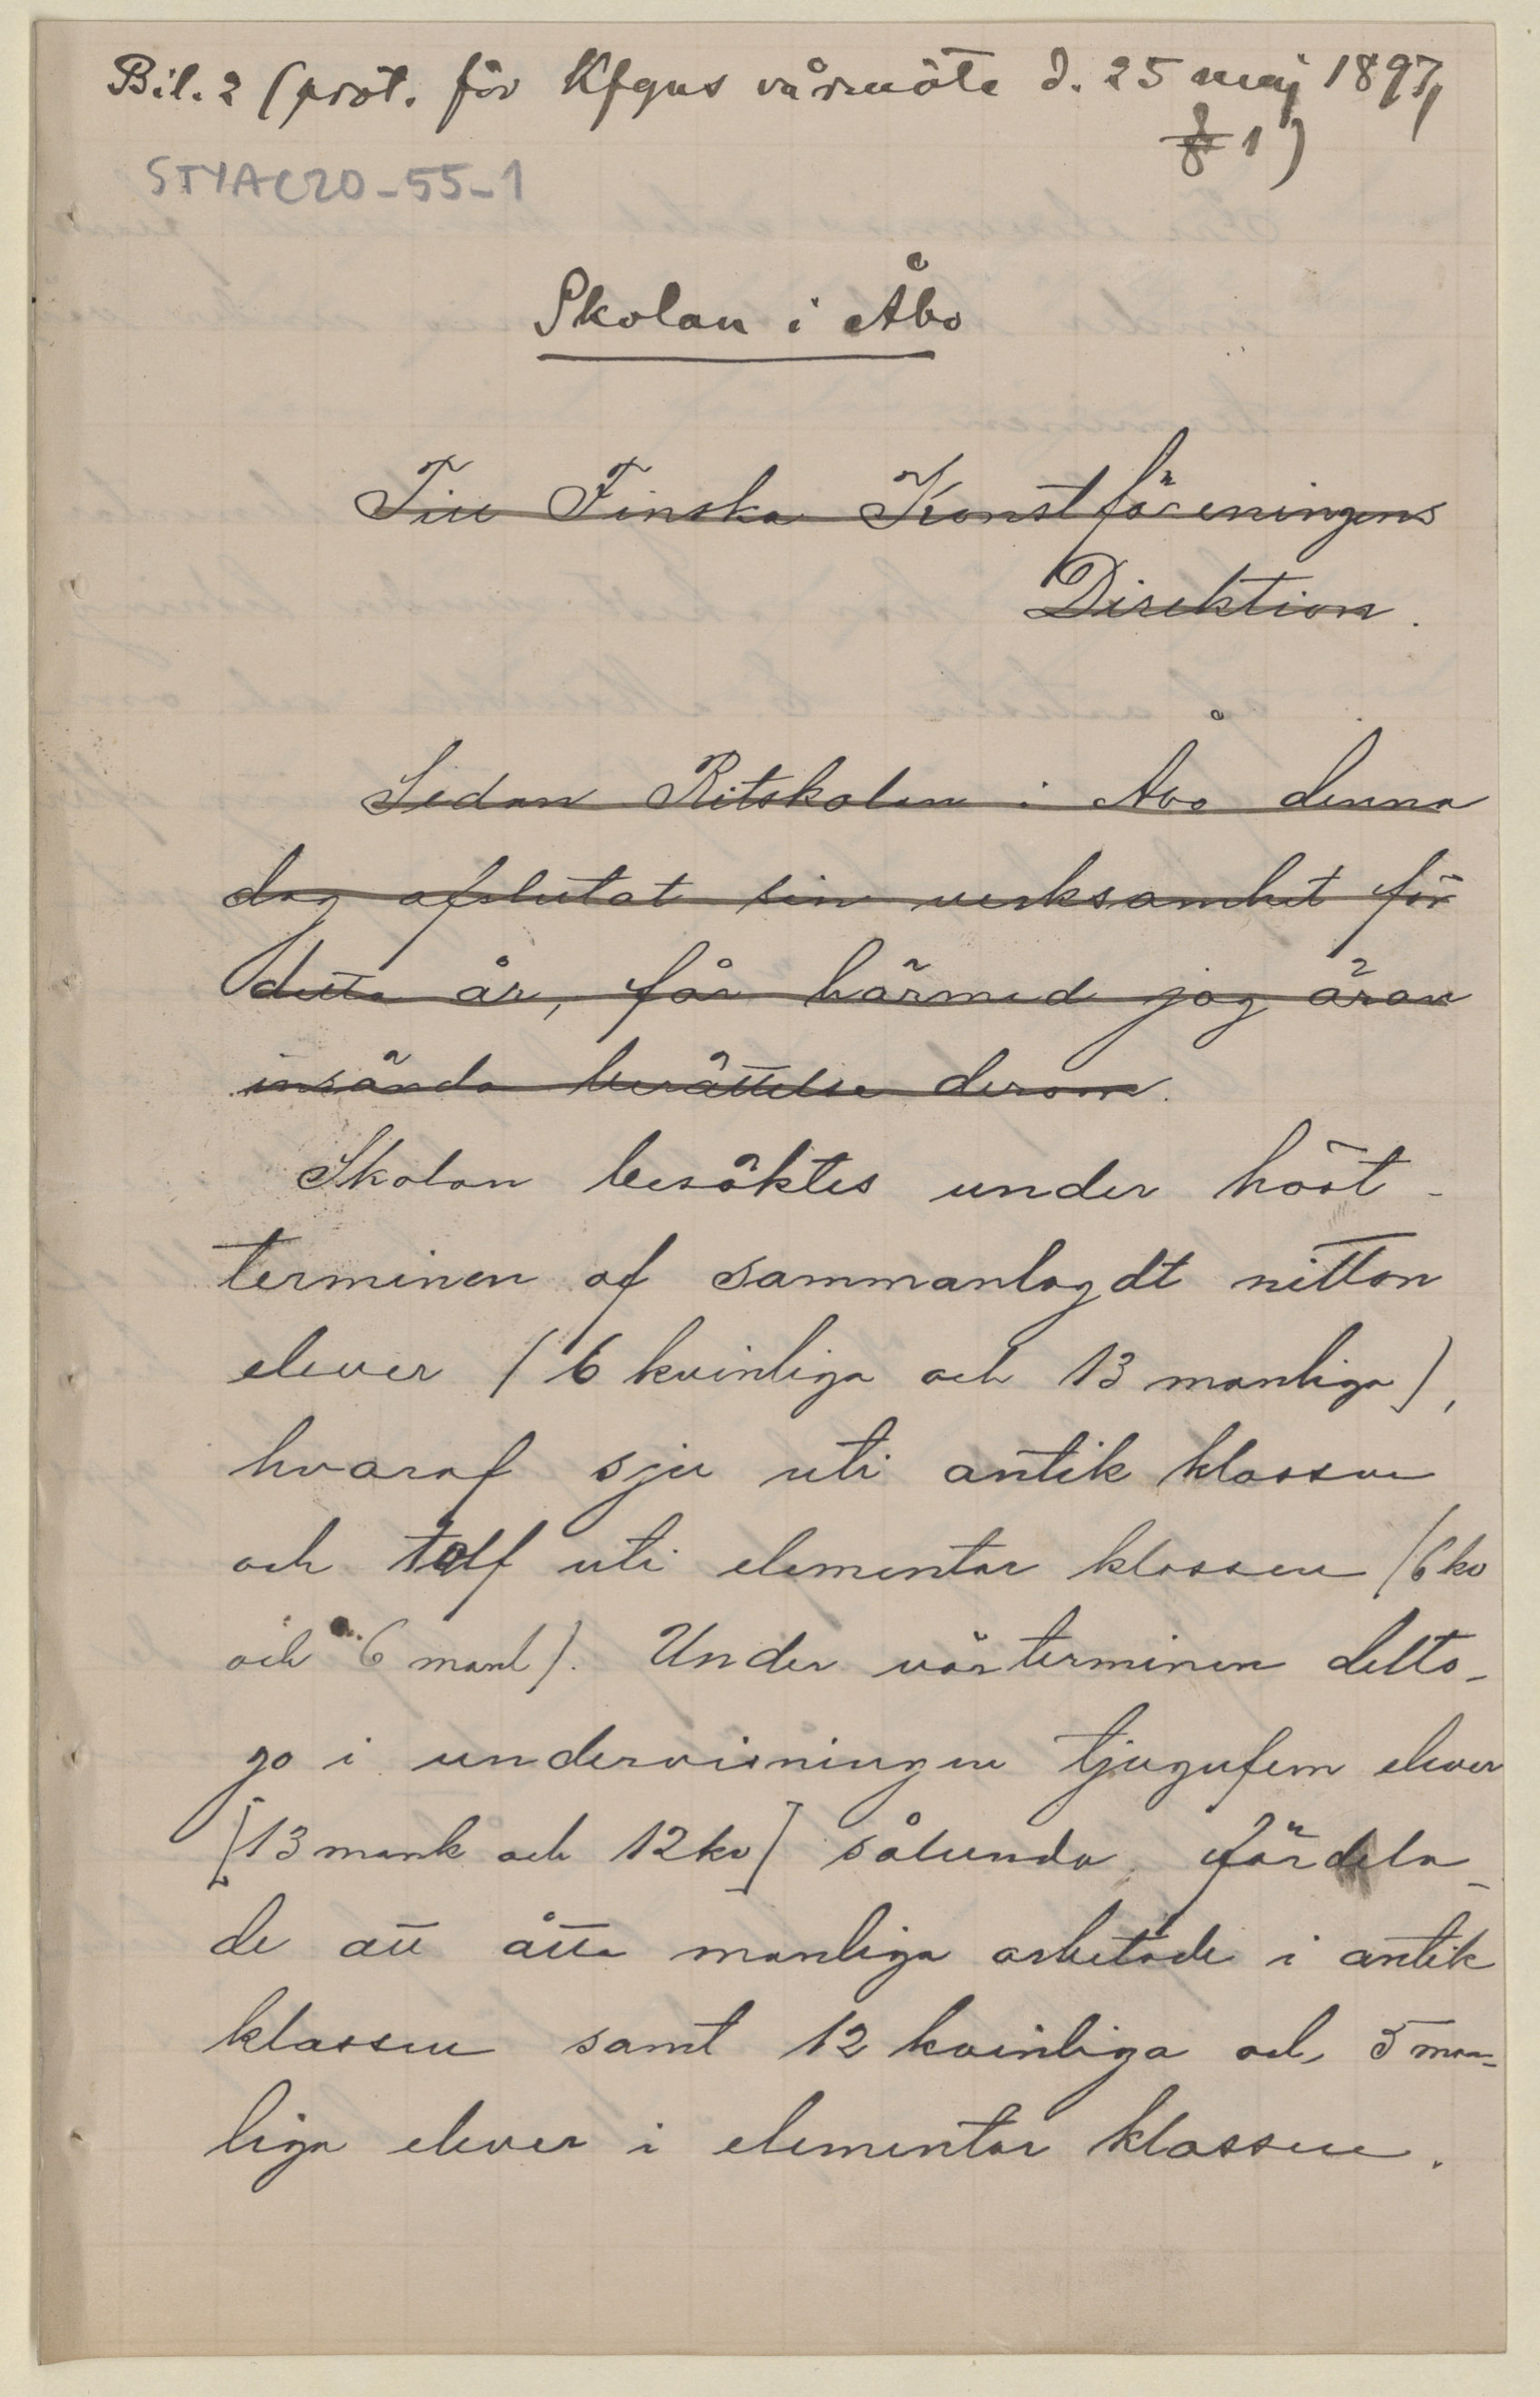 Bil. 2 (prot. för Kfgns vårmöte d. 25 maj 1897,
§ 1)
STYAC20-55-1
Skolan i Åbo
Till Finska Konstföreningens
Direktion.
Sedan Ritskolan i Åbo denna
dag afslutat sin verksamhet för
detta år, får härmed jag äran
insända berättelse derom.
Skolan besöktes under höst-
terminen af sammanlagdt nitton
elever (6 kvinliga och 13 manliga),
hvaraf sju uti antik klassen
och tolf uti elementar klassen (6 kv
och 6 manl). Under vårterminen delto-
go i undervisningen tjugufem elever
[13 manl och 12 kv] sålunda fördela-
de att åtta manliga arbetade i antik
klassen samt 12 kvinliga och 5 man-
liga elever i elementar klassen.